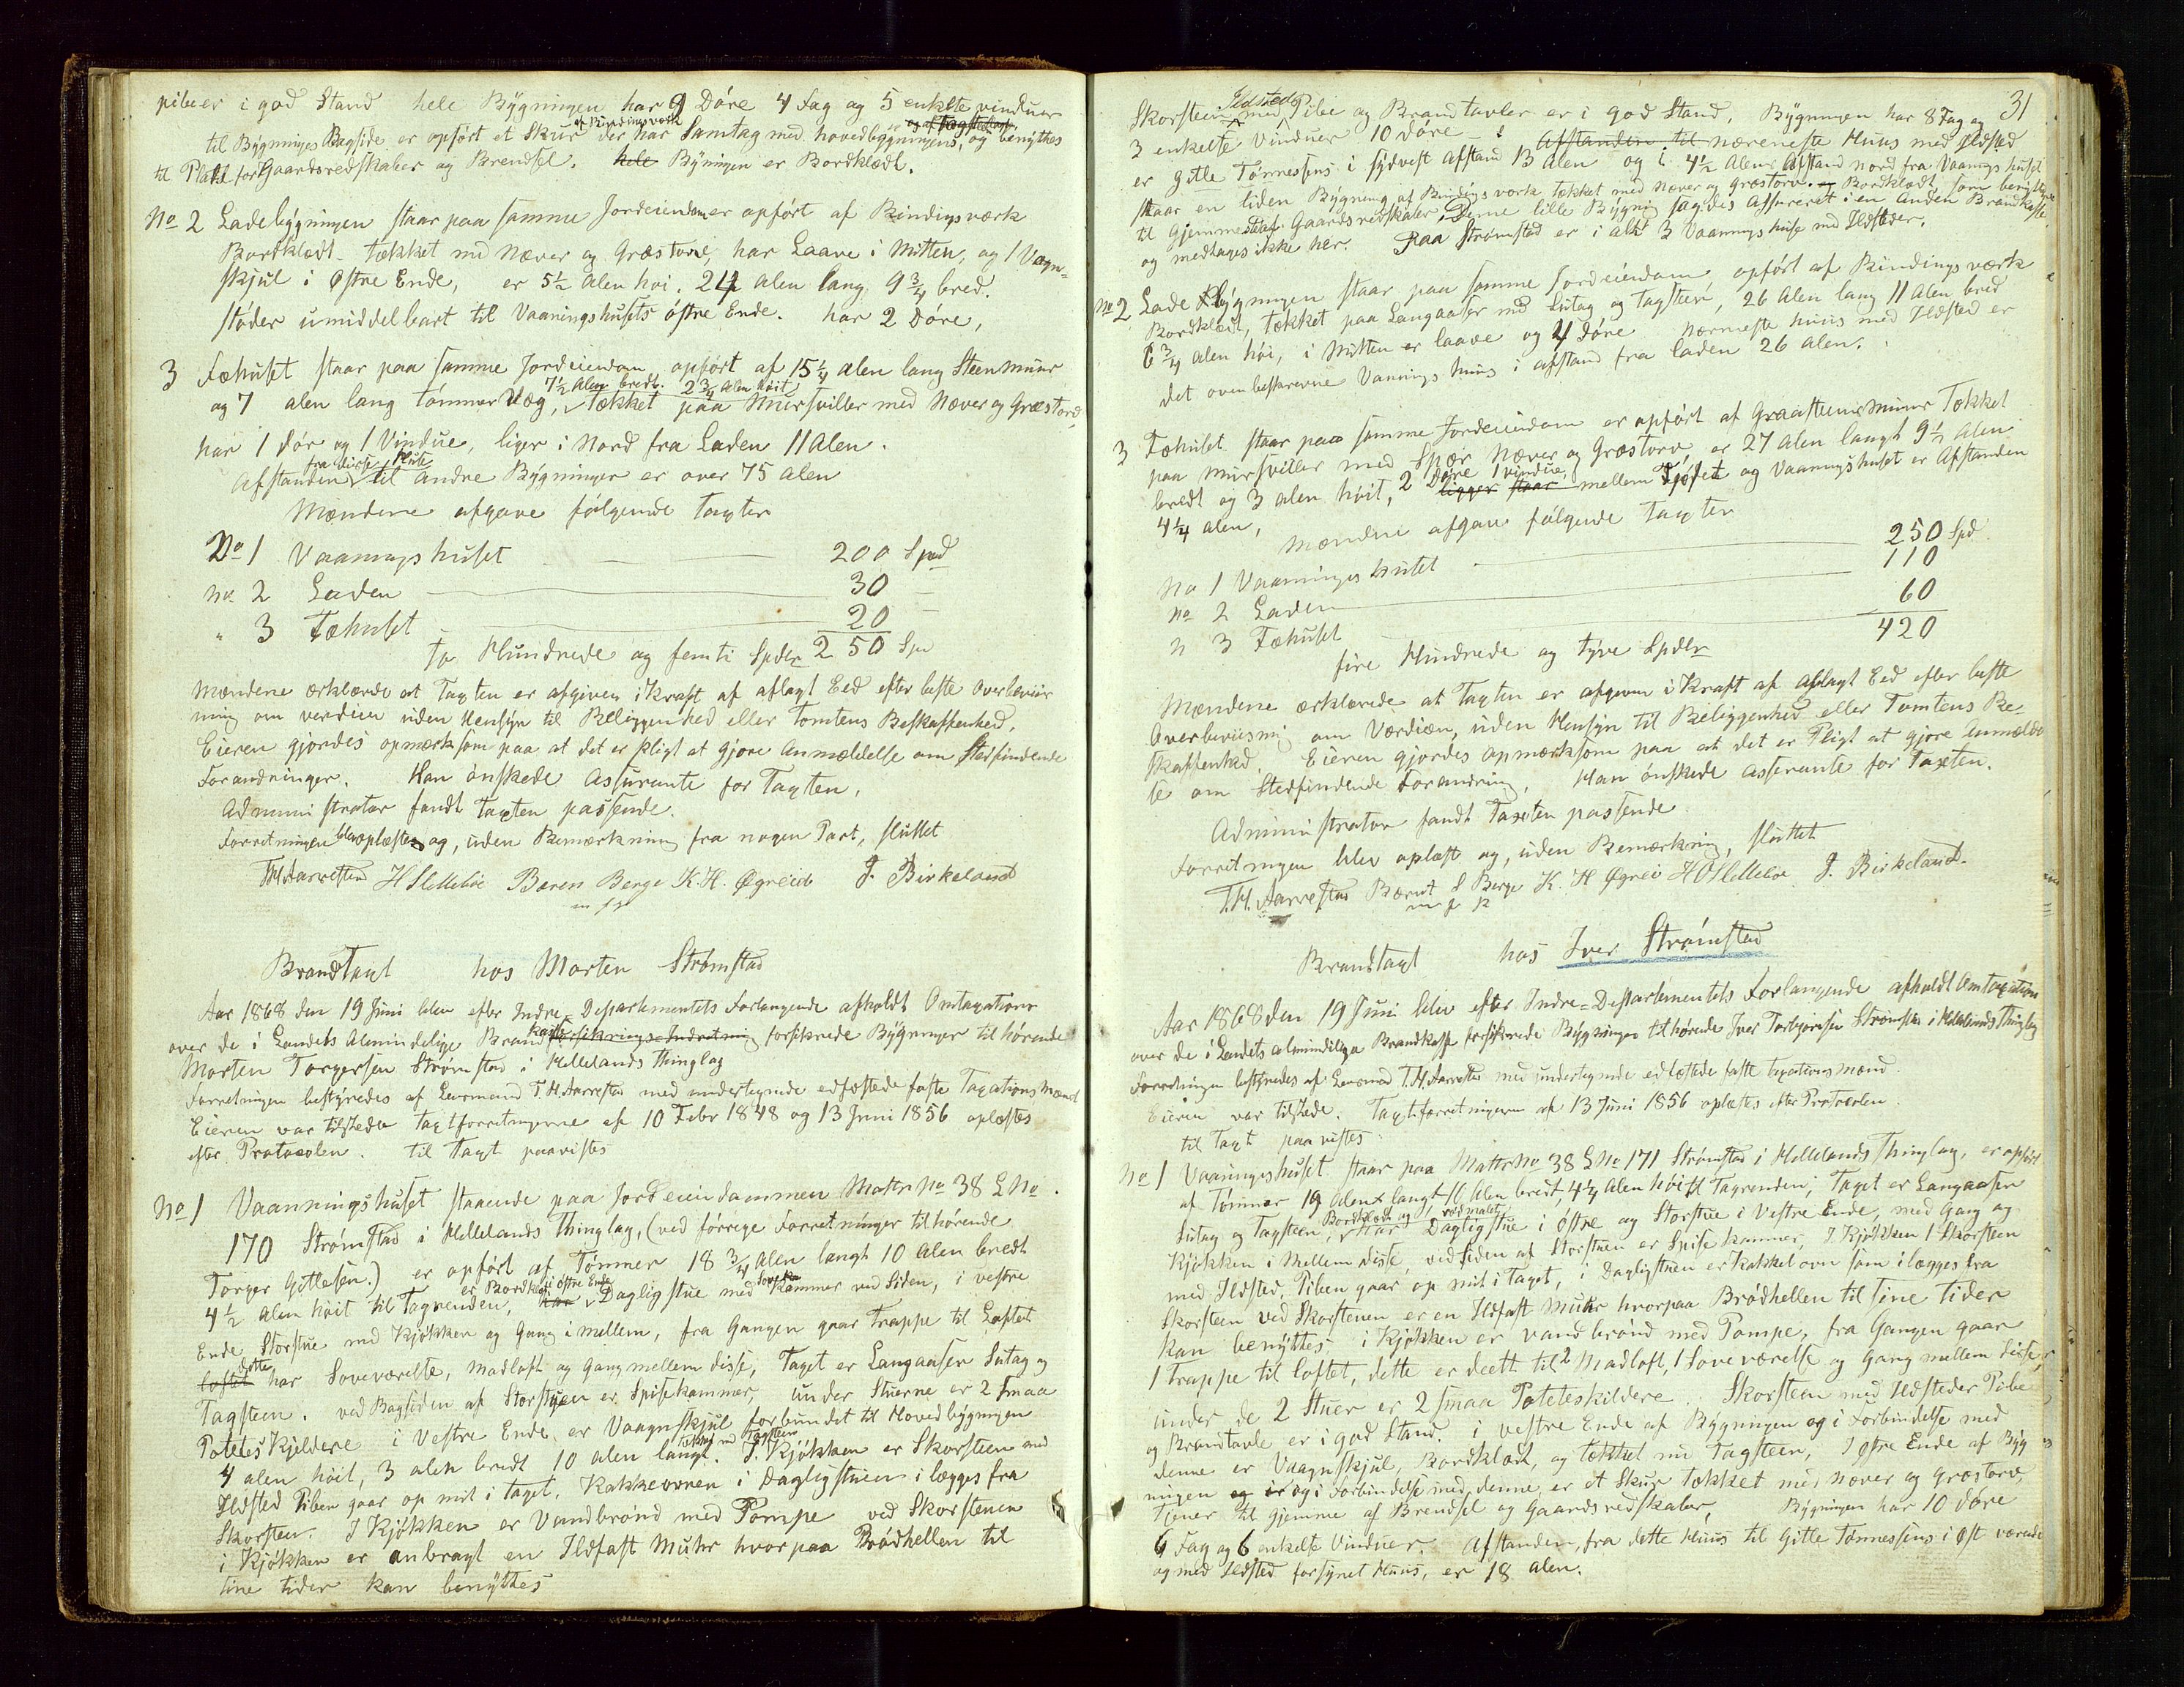 piber er i god Stand hele Bygningen har 9 Døre 4 Fag og 5 enkelte vinduer
til Bygninges Bagside er opført et Skur af Bindingsværk der har Samtag med hovedbygningens, og benyttes
til Plads for Gaardsredskaber og Brendsel. hele Byningen er Bordklædt.
No 2 Ladebygningen staar paa samme Jordeiendom er opført af Bindingsværk
Bordklædt tækket med Næver og Græstorv, har Laave i Mitten, og 1 Vogn-
skjul i østre Ende, er 5½ Alen høi. 24 Alen lang 9¾ bred.
støder umiddelbart til Vaaningshusets østre Ende. har 2 Døre,
3 Fæhuset staar paa samme Jordeiendom opført af 15¼ alen lang Steenmuur
og 7 alen lang tømmer Væg, 7½ Alen bredt. 2¾ Alen høit tækket paa Mursviller med Næver og Græstorv,
har 1 dør og 1 Vindue, liger i Nord fra Laden 11 Alen.
Afstanden fra disse Huse til andre Bygninger er over 75 alen
Mændene afgave følgende Taxter
No 1 Vaaningshuset 200 Spd
No 2 Laden 30 –
" 3 Fæhuset 20 –
To Hundrede og femti Spdlr 250 Spd
Mændene erklærede at Taxten er afgiven i Kraft af aflagt Eed efter beste Overbeviis
ning om verdien uden Hensyn til Beliggenhed eller Tomtens Beskaffenhed.
Eieren gjordes opmærksom paa at det er Pligt at gjøre Anmældelse om Stedfindende
Forandringer. Han ønskede Assurante for Taxten,
Administrator fandt Taxten passende.
Forretningen blev oplæst og, uden Bemærkning fra nogen Part, sluttet
T.H. Aarrestad H Slettebøe Bæren Berge K. H. Øgreid J. Birkeland
m f p
BrandTaxt hos Morten Strømstad
Aar 1868 den 19 Juni blev efter Indre-Departementets Forlangende afholdt Omtaxation
over de i Landets Almindelige Brandkasse forsikrede Bygninger tilhørende
Morten Torgersen Strømstad i Hellelands Thinglag
Forretningen bestyredes af Lensmand T. H. Aarrestad med undertegnede edfæstede faste Taxations Mænd
Eieren var tilstede taxtforretningerne af 10 Febr 1848 og 13 Juni 1856 oplæstes
efter Protocolen. til Taxt paavistes
No 1 Vaanningshuset staaende paa Jordeiendommen Mattr No 38 L No
170 Strømstad i Hellelands Thinglag, (ved førrige Forretninger tilhørende
Torger Gitlesen.) er opført af Tømmer 18¾ Alen langt 10 Alen bredt
4½ Alen høit til Tagrenden, er Bordklædt i østre Ende Dagligstue med Sove Kammer ved Siden, i vestre
Ende Storstue med Kjøkken og Gang imellem, fra Gangen gaar Trappe til Loftet
dette har Soveværelse, Madloft og Gang mellem disse, Taget er Langaaser Sutag og
Tagsteen. ved Bagsiden af Storstuen er Spisekammer, under Stuerne er 2 smaa
PotetesKjeldere i Vestre Ende er Vaagnskjul forbundet til Hovedbygningen
4 alen høit, 3 alen bredt 10 alen langt. tækket med Tagsteen I Kjøkken er Skorsteen med
Ildsted Piben gaar op mit i Taget. Kakkelovnen i Dagligstuen ilægges fra
Skorsteen. I Kjøkken er Vandbrønd med Pompe ved Skorstenen
i Kjøkken er anbragt en Ildfast Muhr hvorpaa Brødhellen til
sine tider kan benyttes
31
Skorsteen med Ildsted Pibe og Brandtavler er i god Stand, Bygningen har 8 Fag og
3 enkelte Vinduer 10 døre Afstanden til næreneste Huus med Ildsted
er Gitle Tønnessens i sydvest afstand 13 Alen og i 4½ Alens Afstand nord fra Vaanings huset
staar en liden Bygning af Bindingsværk tækket med Næver og Græstorv. Bordklædt, som benyttes
til Gjemmested af Gaardsredskaber, Denne lille Bygnig sagdes Assureret i en anden Brandkasse
og medtages ikke her. Paa Strømstad er i alt 3 Vaaningshuse med Ildsteder.
No 2 Lade Bygningen staar paa samme Jordeiendom, opført af Bindingsværk
Bordklædt, tækket paa Langaaser med Sutag og Tagsteen, 26 Alen lang 11 Alen bred
6¾ Alen høi, i Mitten er laave og 4 døre nærmeste huus med Ildsted er
det ovenbeskrevne Vannings huus i afstand fra laden 26 Alen.
3 Fæhuset staar paa samme Jordeiendom er opført af Graasteensmuur Tækket
paa mursviller med Spær Næver og Græstorv, er 27 Alen langt 9½ Alen
bredt og 3 alen høit, 2 Døre 1 vindue, ligger staar mellem Fjøset og Vaaningshuset er Afstanden
4¼ alen,
Mændene afgave følgende Taxter
No 1 Vaaninges huset 250 Spd
No 2 Laden 110
" 3 Fæhuset 60
420
fire Hundrede og tyve Spdlr
Mændene erklærede at Taxten er afgiven i Kraft af aflagt Eed efter beste
Overbeviisning om Værdien, uden Hensyn til Beliggenhed eller Tomtens Be-
skaffenhed. Eieren gjordes opmærksom paa at det er Pligt at gjøre Anmeldel
se om Stedfindende Forandring, Han ønskede Assurante for Taxten.
Administrator fandt Taxten passende
Forretningen blev oplæst og, uden Bemærkning, sluttet
T.H. Aarrestad Bærnt S Berge K. H Øgrei H O Slettebøe J. Birkeland.
m f p
Brandtaxt hos Iver Strømstad
Aar 1868 den 19 Juni blev efter Indre-Departementets Forlangende afholdt Omtaxation
over de i Landets almindelige Brandkasse forsikrede Bygninger tilhørende Iver Torbjørnsen Strømstad i Hellelands Thinglag
Forretningen bestyredes af Lensmand T. H. Aarrestad med undertegnede edfæstede faste Taxationsmænd.
Eieren var tilstede. Taxtforretningerne af 13 Juni 1856 oplæstes efter Protocolen.
til Taxt paavistes:
No 1 Vaaningshuset staar paa Mattr No 38 L No 171 Strømstad i Hellelands Thinglag, er opført
af Tømmer 19 Alen langt 11 Alen bredt, 4¼ Alen høit til Tagrenden; Taget er Langaaser
Sutag og Tagsteen, Bordklædt og rødmalet har Dagligstue i Østre og Storstue i Vestre Ende, med Gang og
Kjøkken i Mellem disse, ved Siden af Storstuen er Spise kammer, I Kjøkken 1 Skorsteen
med Ildsted, Piben gaar op mit i Taget, i Dagligstuen er Kakkelovn som ilægges fra
Skorsteen ved Skorstenen er en Ildfast Muhr hvorpaa Brødhellen til sine tider
kan benyttes, i Kjøkken er vandbrønd med Pompe, fra Gangen gaar
1 Trappe til loftet, dette er deelt til 2 Madloft, 1 Soveværelse og Gang mellem disse,
under de 2 Stuer er 2 smaa Poteteskildere. Skorsteen med Ildsteder Pibe
og Brandtavle er i god Stand. i vestre Ende af Bygningen og i Forbindelse med
denne er Vaagnskjul, Bordklædt, og tækket med Tagsteen, I østre Ende af Byg
ningen og i Forbindelse med denne, er et Skur tækket med næver og græstorv,
tjener til Gjemme af Brendsel og Gaardsredskaber, Bygningen har 10 døre
6 Fag og 6 enkelte Vinduer. Afstanden, fra dette Huus til Gitle Tønnessens i øst værende
og med Ildsted forsynet Huus, er 18 alen.